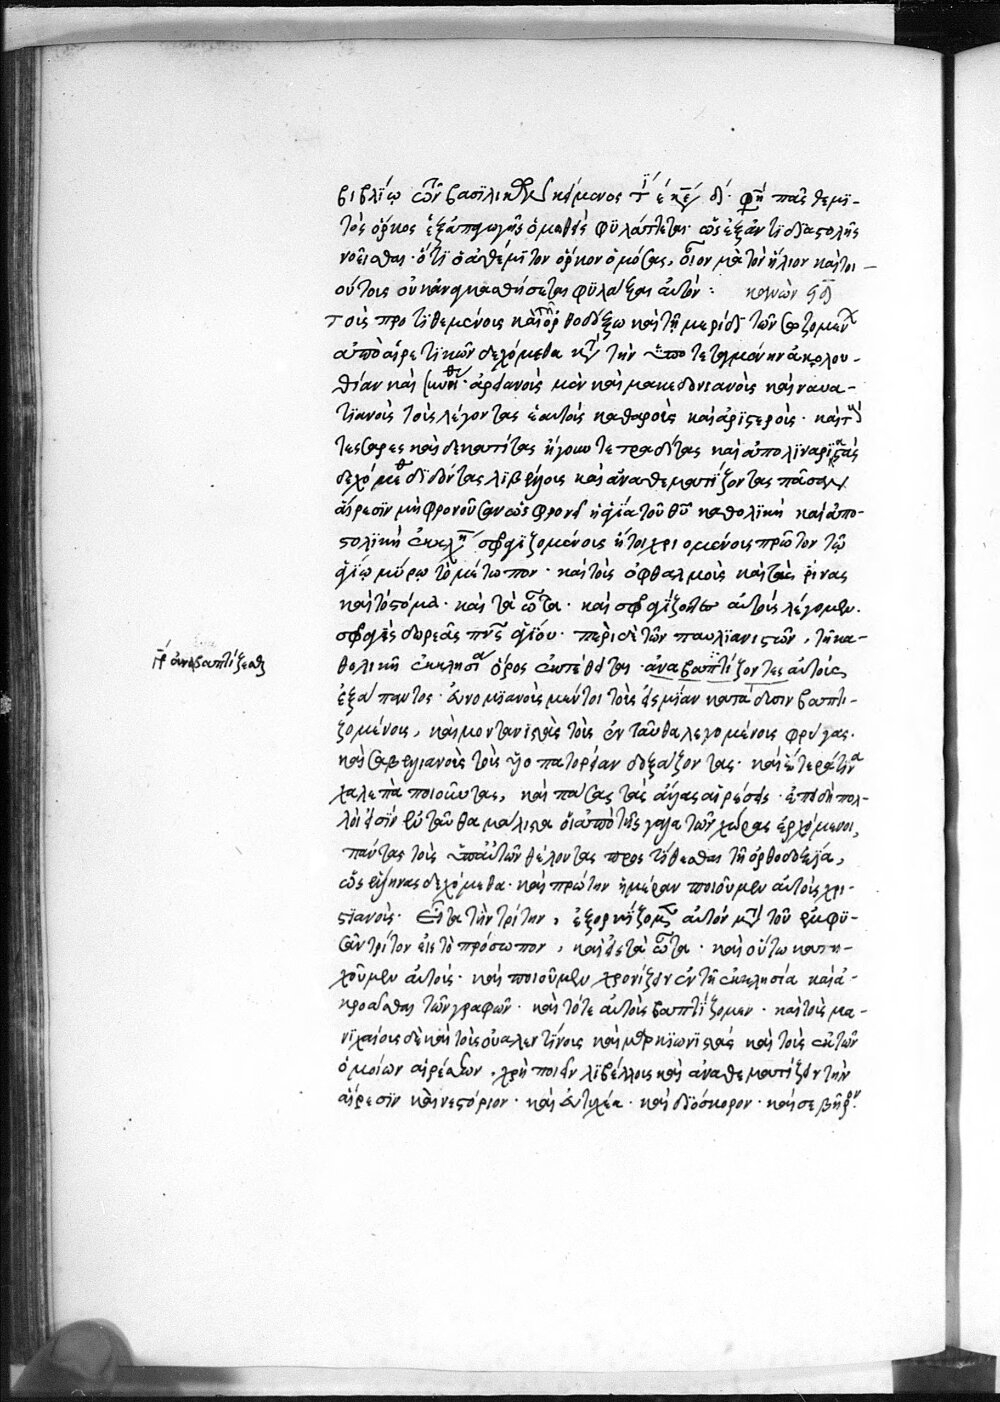 βιβλίῳ τῶν βασιλικῶν κείμενος δ. φησὶ πᾶς θεμι-
τὸς ὅρκος ἐξ ἐπαγωγῆς ὀμοθεὶς φυλάττεται· ὡς ἐξ ἀντιδιαστολῆς
νοεῖσθαι· ὅτι ὁ ἀθέμιτον ὅρκον ὀμόσας, οἷον μὰ τὸν ἥλιον καὶ τοι-
ούτοις οὐκ ἀναγκασθήσεται φυλάξαι αὐτόν: κανὼν
Τοὺς προστιθεμένους καὶ τῇ ὀρθοδόξῳ καὶ τῇ μερίδι τῶν σωζομένων
ἀπὸ αἱρετικῶν δεχόμεθα κατὰ τὴν ὑποτεταγμένην ἀκολου-
θίαν καὶ συνήθειαν· ἀρειανοὺς μὲν καὶ μακεδονιανοὺς καὶ ναυα-
τιανοὺς τοὺς λέγοντας ἑαυτοὺς καθαροὺς καὶ ἀριστερούς· καὶ τοὺς
τεσσαρεσκαιδεκατίτας ἤγουν τετραδίτας καὶ ἀπολιναριστὰς
δεχόμεθα διδόντας λιβέλλους καὶ ἀναθεματίζοντας πᾶσαν
αἵρεσιν μὴ φρονοῦσαν ὡς φρονεῖ ἡ ἁγία τοῦ θῦ καθολικὴ καὶ ἀπο-
στολικὴ ἐκκλησία σφραγιζομένους ἤτοι χριομένους πρῶτον τῷ
ἁγίῳ μύρῳ τὸ μέτωπον· καὶ τοὺς ὀφθαλμοὺς καὶ τὰς ῥίνας
καὶ τὸ στόμα· καὶ τὰ ὦτα· καὶ σφραγίζοντες αὐτοὺς λέγομεν.
σφραγὶς δωρεᾶς πνς ἁγίου· περὶ δὲ τῶν παυλιανιστῶν, τῇ κα-
γρ ἀναβαπτίζεσθαι
θολικῇ ἐκκλησίᾳ ὅρος ἐκτέθειται· ἀναβαπτίζοντες αὐτοὺς
ἐξάπαντος· εὐνομιανοὺς μέντοι τοὺς εἰς μίαν κατάδυσιν βαπτι-
ζομένους, καὶ μοντανιστὰς τοὺς ἐνταῦθα λεγομένους φρύγας.
καὶ σαβελλιανοὺς τοὺς υἱοπατορίαν δοξάζοντας· καὶ ἕτερά τινα
χαλεπὰ ποιοῦντας, καὶ πάσας τὰς ἄλλας αἱρέσεις· ἐπειδὴ πολ-
λοί εἰσιν ἐνταῦθα μάλιστα οἱ ἀπὸ τῆς γαλατῶν χώρας ἐρχόμενοι,
πάντας τοὺς ὑπ' αὐτῶν θέλοντας προστίθεσθαι τῇ ὀρθοδοξίᾳ,
ὡς ἕλληνας δεχόμεθα· καὶ πρώτην ἡμέραν ποιοῦμεν αὐτοὺς χρι-
στιανούς· Εἶτα τὴν τρίτην, ἐξορκίζομεν αὐτὸν μετὰ τοῦ ἐμφυ-
σᾶν τρίτον εἰς τὸ πρόσωπον, καὶ εἰς τὰ ὦτα· καὶ οὕτω κατη-
χοῦμεν αὐτούς· καὶ ποιοῦμεν χρονίζειν ἐν τῇ ἐκκλησίᾳ καὶ ἀ-
κροᾶσθαι τῶν γραφῶν· καὶ τότε αὐτοὺς βαπτίζομεν· καὶ τοὺς μα-
νιχαίους δὲ καὶ τοὺς οὐαλεντίνους καὶ μαρκιωνιστὰς καὶ τοὺς ἐκ τῶν
ὁμοίων αἱρέσεων, χρὴ ποιεῖν λιβέλλους καὶ ἀναθεματίζειν τὴν
αἵρεσιν καὶ νεστόριον· καὶ εὐτυχέα· καὶ διόσκορον· καὶ σεβῆρον.